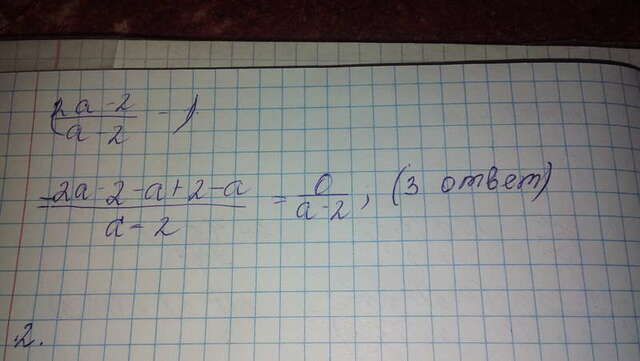 (2a-2
a-2 -1
2a-2-a+2-a
a-2 = 0
a-2 ; (3 ответ)
2.